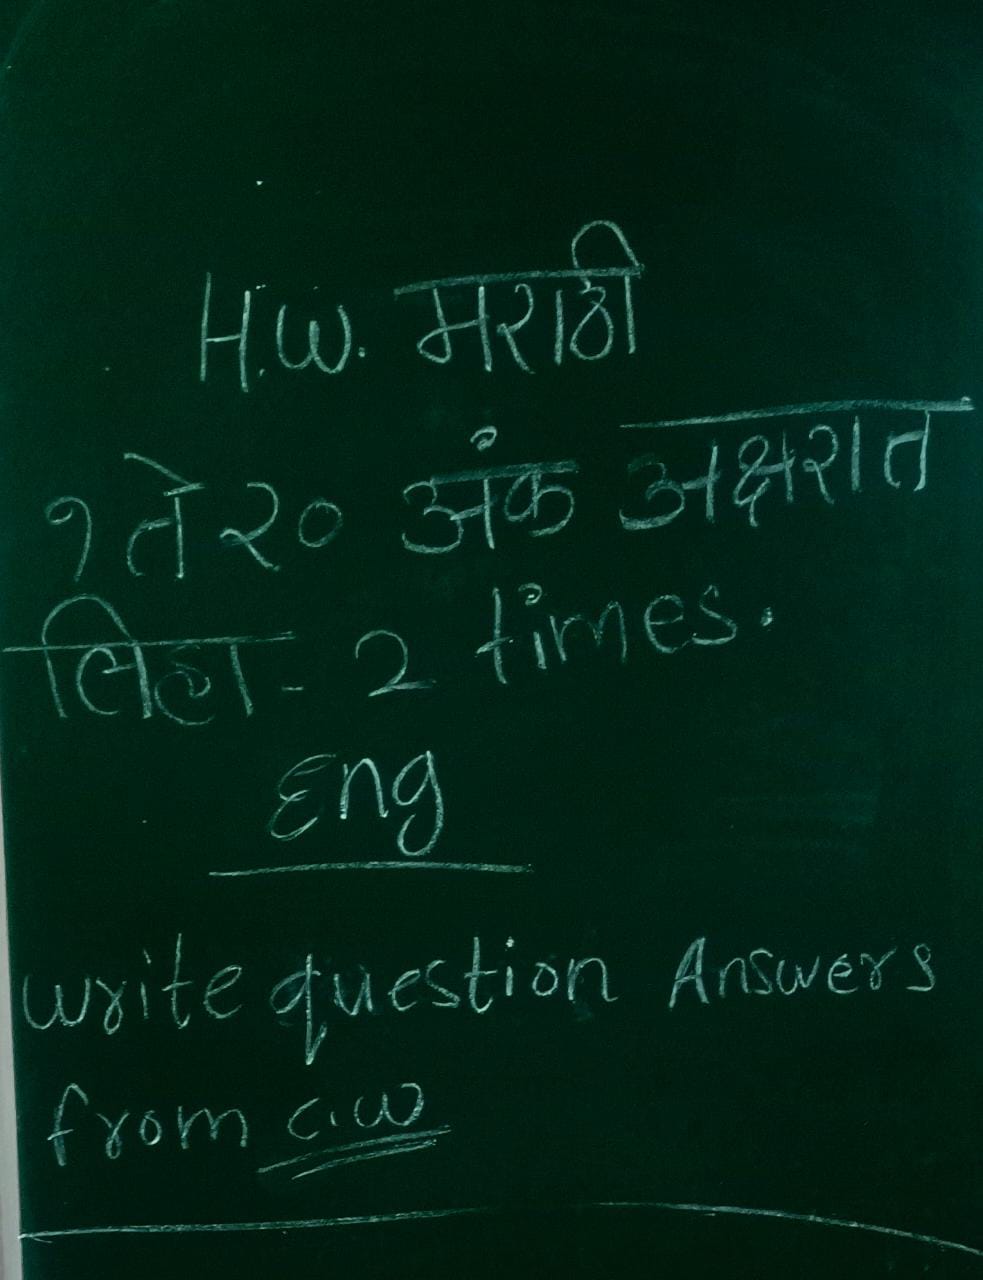 H.W. मराठी
१ ते २० अंक अक्षरात
लिहा - 2 times.
Eng
write question Answers
from c.w